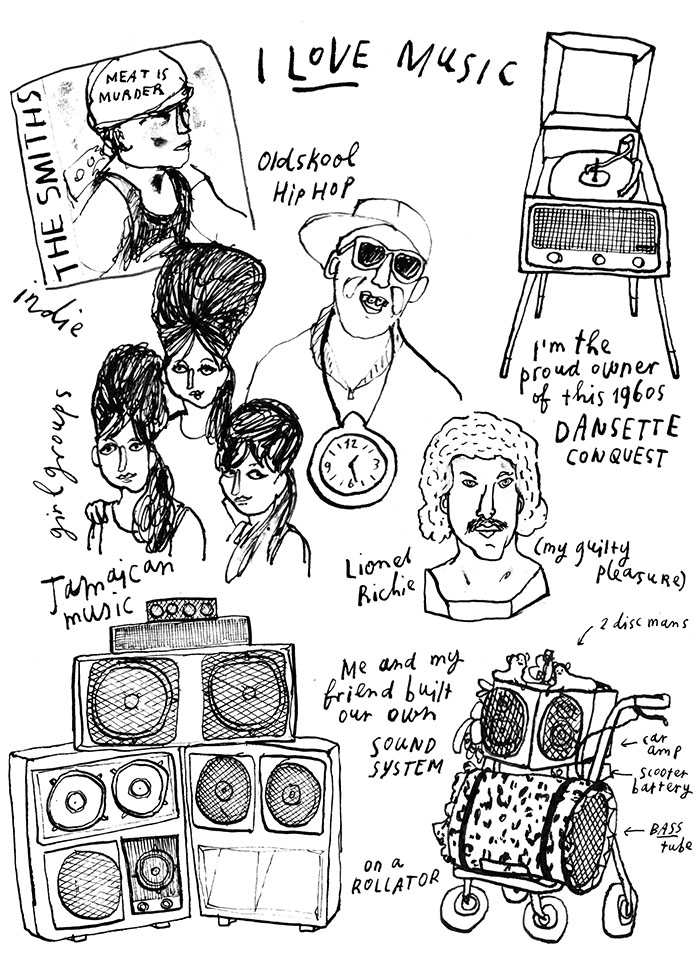 I LOVE MUSIC
MEAT IS
MURDER
THE SMITHS
indie
Oldskool
Hip HOP
12
9
3
6
I'm the
proud owner
of this 1960s
DANSETTE
CONQUEST
girlgroups
Lionel
Richie
(my guilty
pleasure)
Jamaican
music
Me and my
friend built
our own
SOUND
SYSTEM
on a
ROLLATOR
2 disc mans
car
amp
scooter
battery
BASS
tube